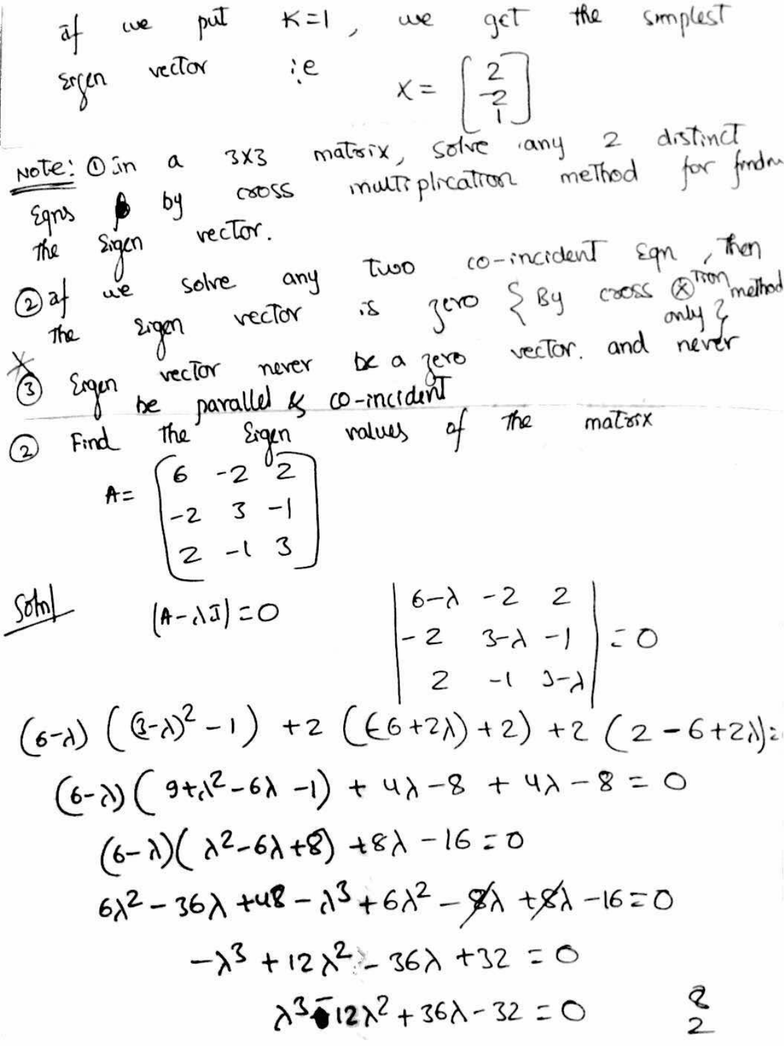 if we put K=1, we get the simplest
Eigen vector i.e X = [2 -2 1]
NOTE: ① in a 3X3 matrix, solve any 2 distinct
Eqns by cross multiplication method for findin
the Eigen vector.
② if we solve any two co-incident Eqn, then
the Eigen vector is zero { By cross ⊗tion method
only }
③ Eigen vector never be a zero vector. and never
be parallel & co-incident
② Find the Eigen values of the matrix
A = [6 -2 2
-2 3 -1
2 -1 3]
Soln/ |A-λI| = 0
|6-λ -2 2
-2 3-λ -1
2 -1 3-λ| = 0
(6-λ)((3-λ)² - 1) + 2((-6+2λ)+2) + 2(2-6+2λ) =
(6-λ)(9+λ²-6λ-1) + 4λ-8 + 4λ-8 = 0
(6-λ)(λ²-6λ+8) + 8λ-16 = 0
6λ² - 36λ + 48 - λ³ + 6λ² - 8λ + 8λ - 16 = 0
-λ³ + 12λ² - 36λ + 32 = 0
λ³ - 12λ² + 36λ - 32 = 0
8
2